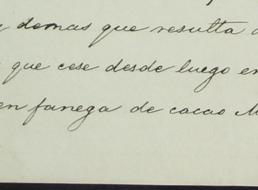 y demas que resulta
que cese desde luego en
en fanega de cacao